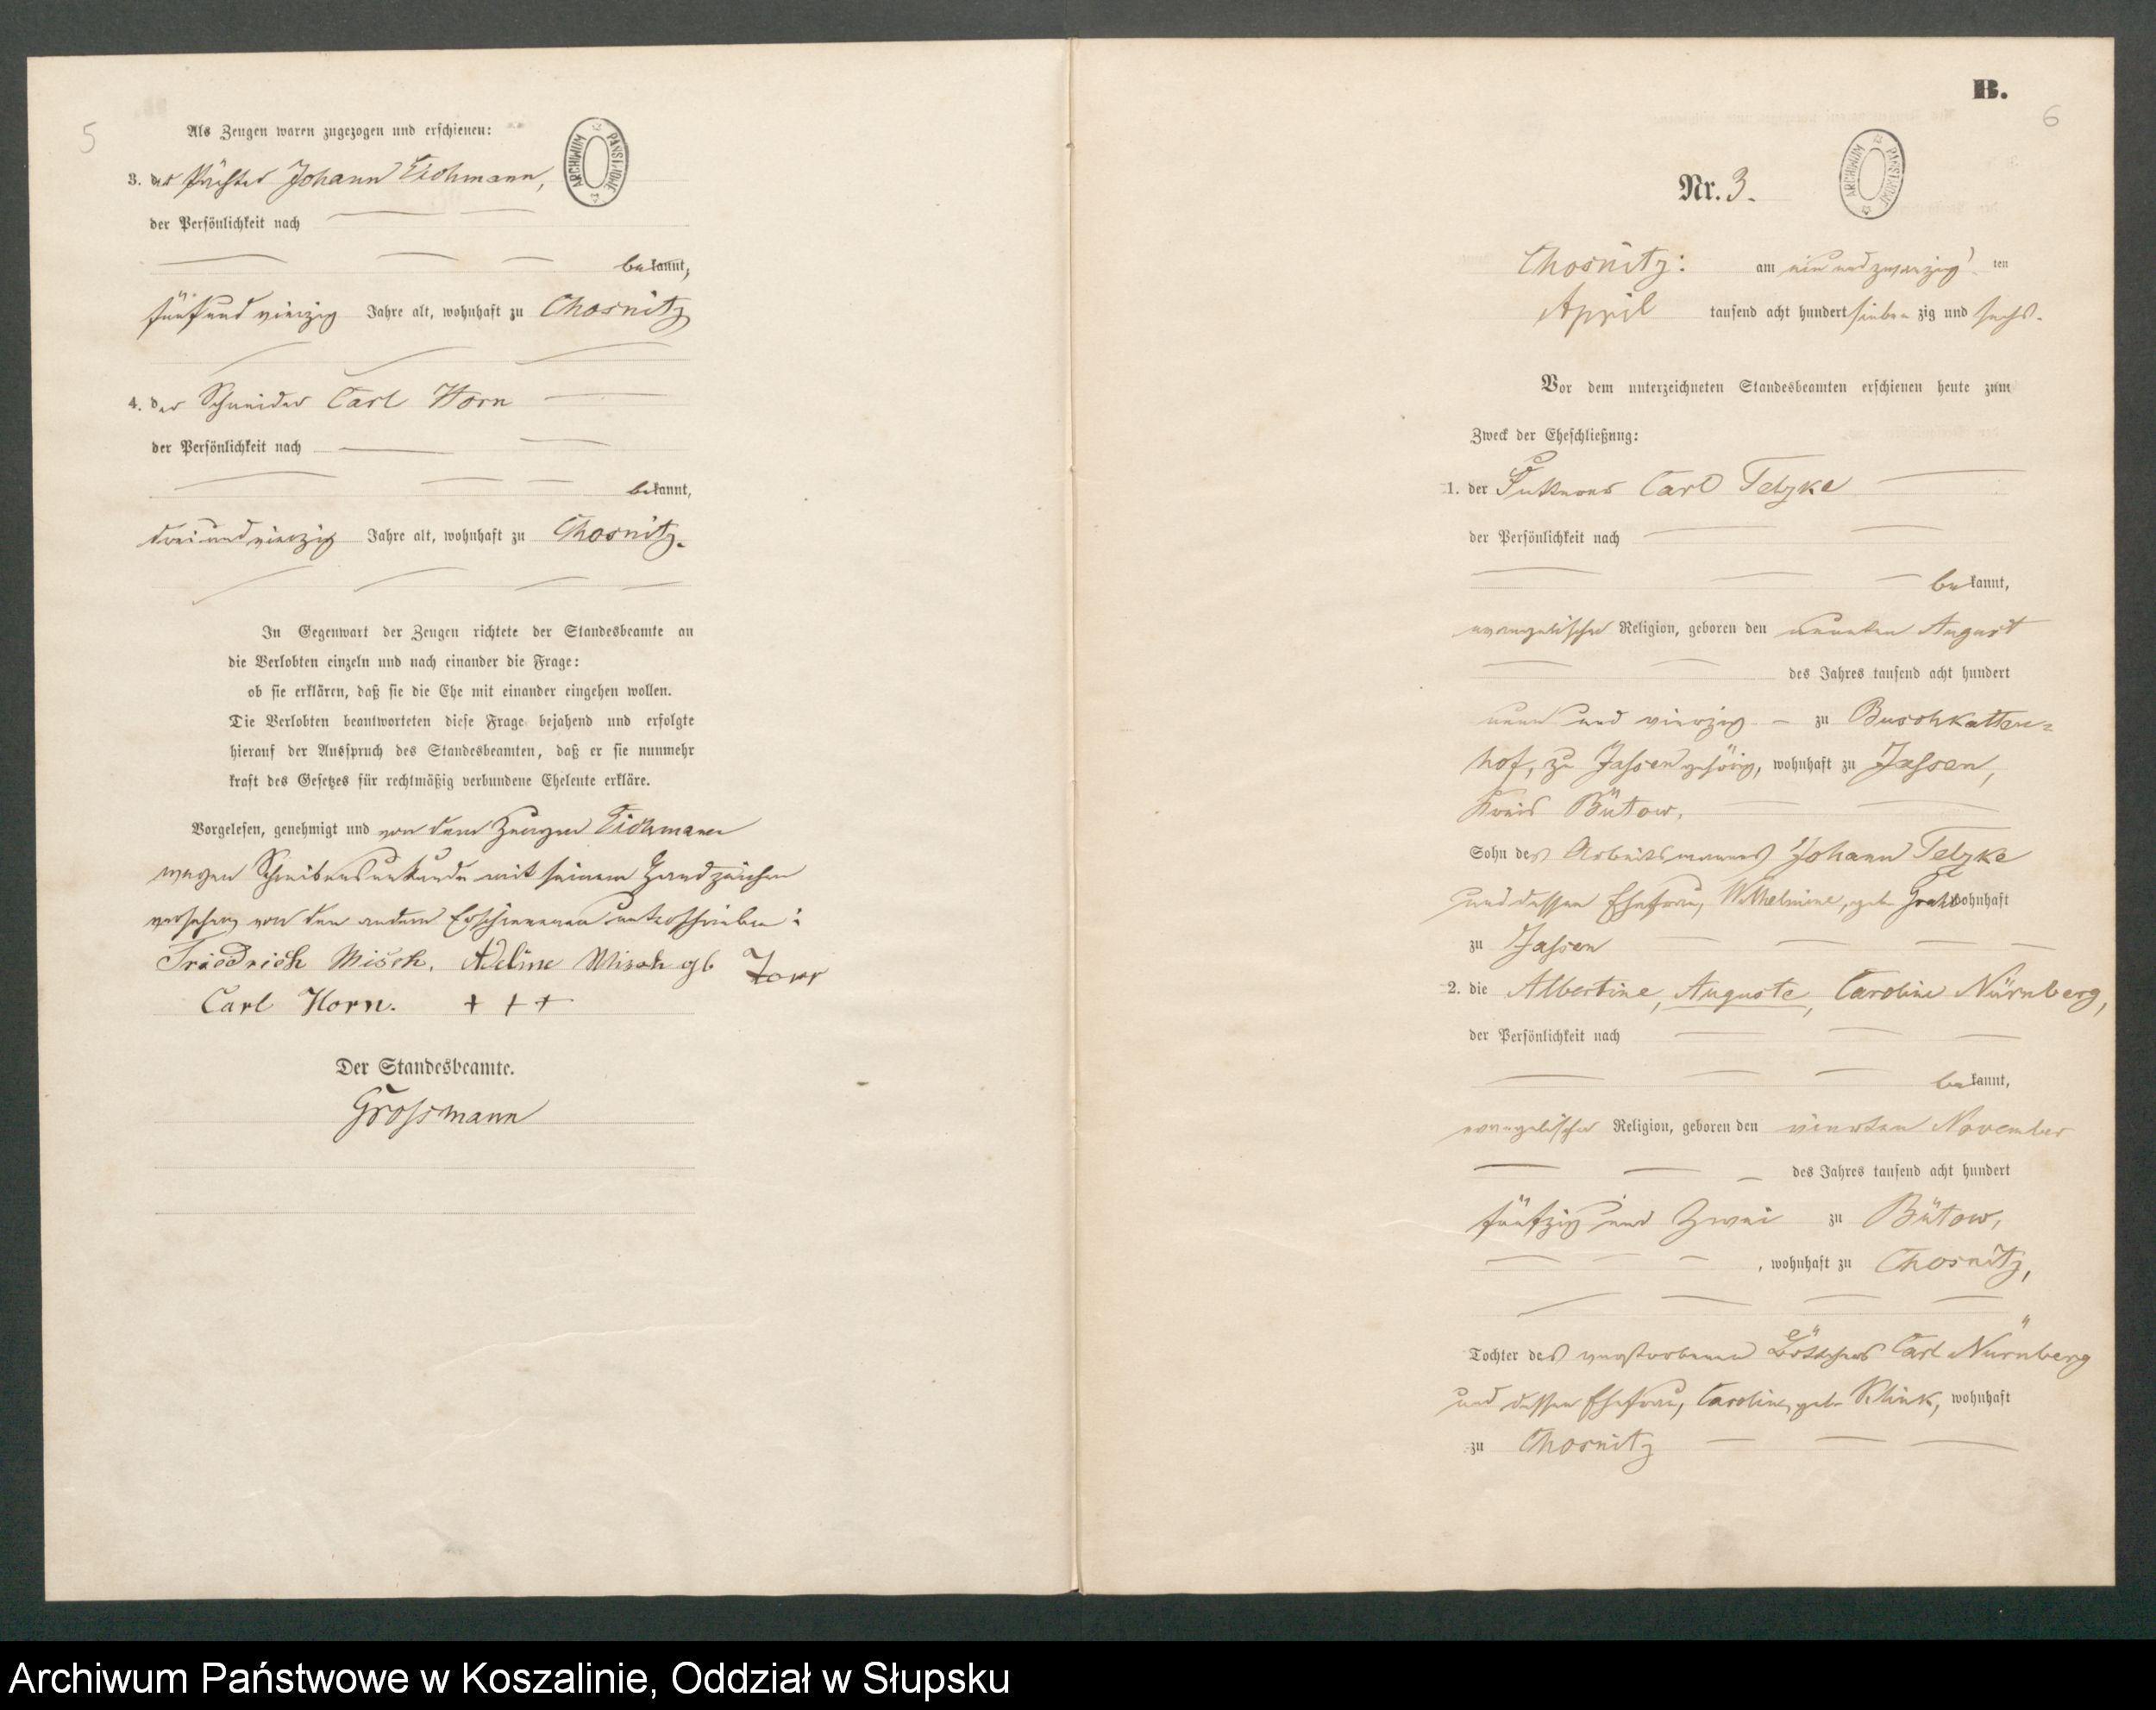 5
Als Zeugen waren zugezogen und erschienen:
ARCHIWUM PAŃSTWOWE
3. der Johann Eichmann,
der Persönlichkeit nach
bekannt,
fünf und vierzig Jahre alt, wohnhaft zu Chosnitz
4. der Schneider Carl Horn
der Persönlichkeit nach
bekannt,
drei und vierzig Jahre alt, wohnhaft zu Chosnitz.
In Gegenwart der Zeugen richtete der Standesbeamte an
die Verlobten einzeln und nach einander die Frage:
ob sie erklären, daß sie die Ehe mit einander eingehen wollen.
Die Verlobten beantworteten diese Frage bejahend und erfolgte
hierauf der Ausspruch des Standesbeamten, daß er sie nunmehr
kraft des Gesetzes für rechtmäßig verbundene Eheleute erkläre.
Vorgelesen, genehmigt und von dem Zeugen Eichmann
wegen Schreibensunkunde mit seinem Handzeichen
versehen, von den andern Erschienenen unterschrieben:
Friedrich Misch. Adeline Misch gb
Carl Horn. + + +
Der Standesbeamte.
Grossmann
B.
6
Nr. 3.
ARCHIWUM PAŃSTWOWE
Chosnitz: am ein und zwanzig ten
April tausend acht hundert sieben zig und sechs.
Vor dem unterzeichneten Standesbeamten erschienen heute zum
Zweck der Eheschließung:
1. der Carl Tetzke
der Persönlichkeit nach
bekannt,
evangelischer Religion, geboren den neunten August
des Jahres tausend acht hundert
neun und vierzig zu Buschkatten=
hof, zu Jassen gehörig, wohnhaft zu Jassen,
Kreis Bütow,
Sohn des Arbeitsmannes Johann Tetzke
und dessen Ehefrau, Wilhelmine, geb. wohnhaft
zu Jassen
2. die Albertine, Auguste, Caroline Nürnberg,
der Persönlichkeit nach
bekannt,
evangelischer Religion, geboren den vierten November
des Jahres tausend acht hundert
fünfzig und zwei zu Bütow,
, wohnhaft zu Chosnitz,
Tochter des verstorbenen Böttchers Carl Nürnberg
und dessen Ehefrau, Caroline, geb. Schink, wohnhaft
zu Chosnitz
Archiwum Państwowe w Koszalinie, Oddział w Słupsku